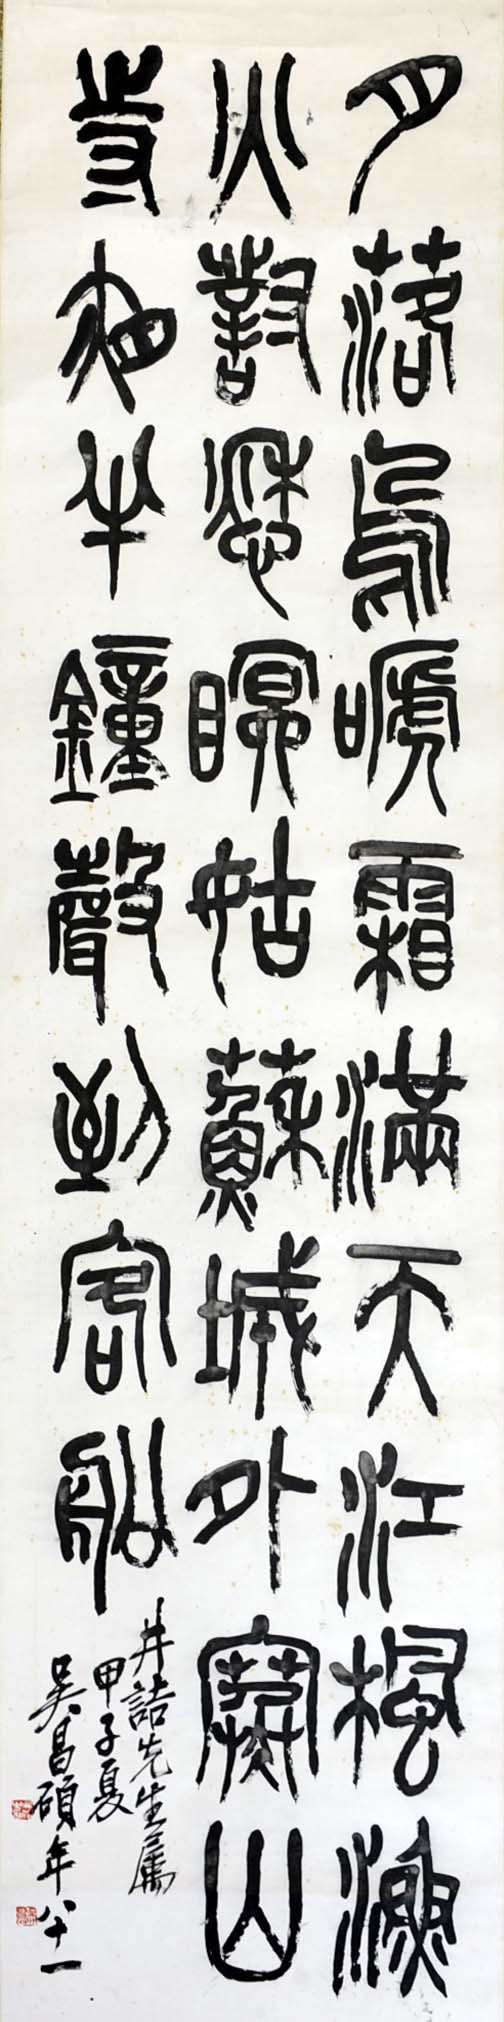 月落烏嗁霜滿天江楓漁
火對愁瞑姑蘇城外寒山
寺夜半鐘聲到客船
井詰先生屬
甲子夏
吳昌碩年八十一